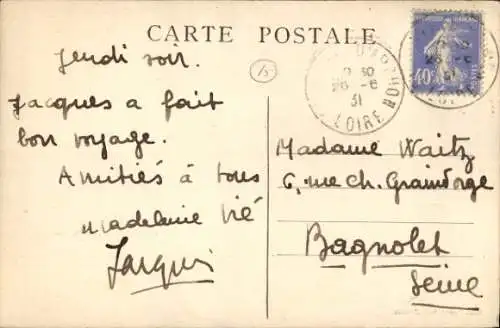 CARTE POSTALE
Jeudi soir.
Jacques a fait
bon voyage.
Amitiés à tous
Madeleine Vié
Jacques
15
Madame Waitz
6, rue Ch. Graindorge
Bagnolet
Seine
9 30
26 -6
31
LOIRE
40